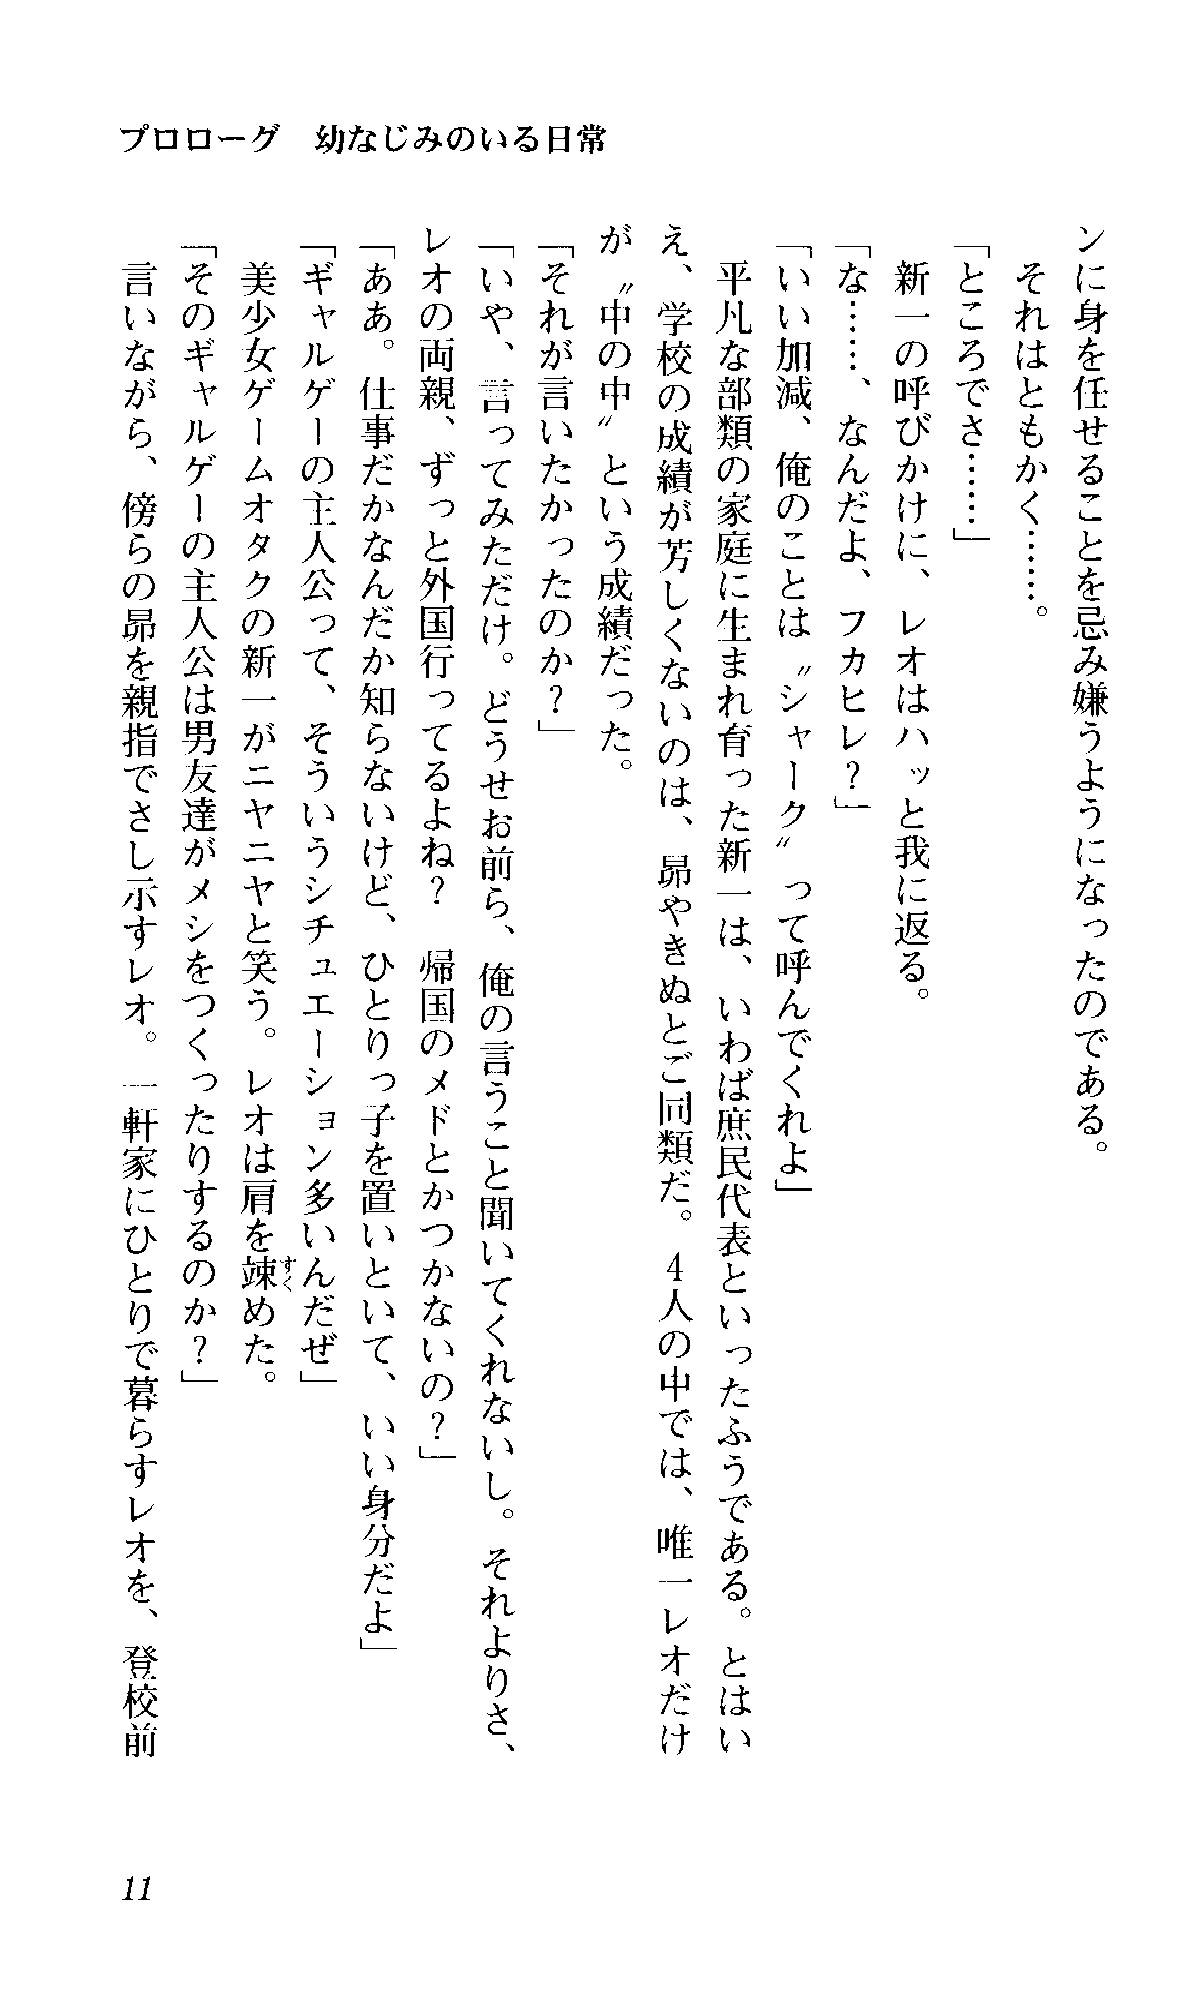 プロローグ　幼なじみのいる日常
ンに身を任せることを忌み嫌うようになったのである。
　それはともかく……。
「ところでさ……」
　新一の呼びかけに、レオはハッと我に返る。
「な……、なんだよ、フカヒレ？」
「いい加減、俺のことは〝シャーク〟って呼んでくれよ」
　平凡な部類の家庭に生まれ育った新一は、いわば庶民代表といったふうである。とはい
え、学校の成績が芳しくないのは、昴やきぬとご同類だ。4人の中では、唯一レオだけ
が〝中の中〟という成績だった。
「それが言いたかったのか？」
「いや、言ってみただけ。どうせお前ら、俺の言うこと聞いてくれないし。それよりさ、
レオの両親、ずっと外国行ってるよね？　帰国のメドとかつかないの？」
「ああ。仕事だかなんだか知らないけど、ひとりっ子を置いといて、いい身分だよ」
「ギャルゲーの主人公って、そういうシチュエーション多いんだぜ」
　美少女ゲームオタクの新一がニヤニヤと笑う。レオは肩を竦すくめた。
「そのギャルゲーの主人公は男友達がメシをつくったりするのか？」
　言いながら、傍らの昴を親指でさし示すレオ。一軒家にひとりで暮らすレオを、登校前
11